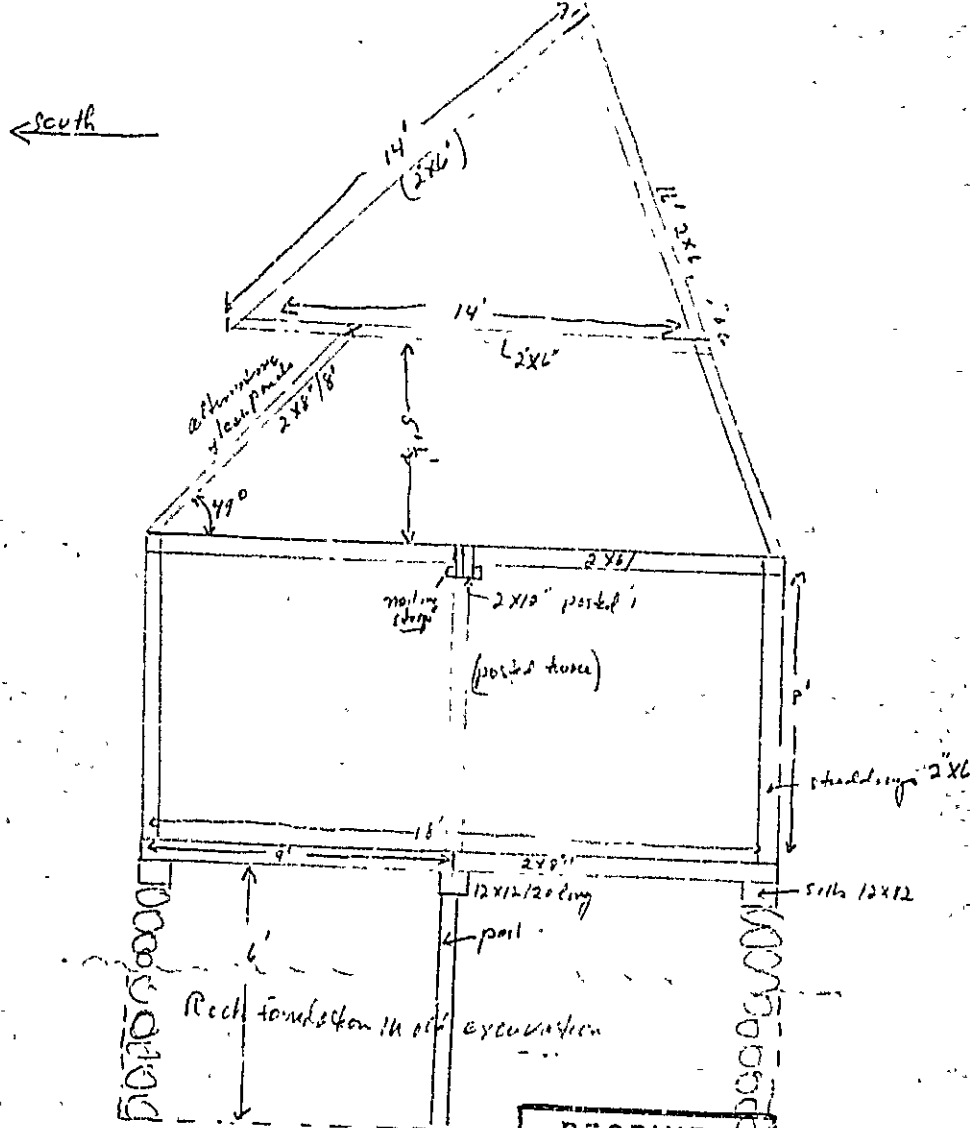 south
14'
(2"x6')
2x6
14'
2"x6"
2x8"/8'
49°
2x6/
nailing
2x12" posted
(posted here)
8'
studdings 2"x6
18'
9'
2x8"
12x12/20 long
sills 12x12
post
6'
Rock foundation in old excavation